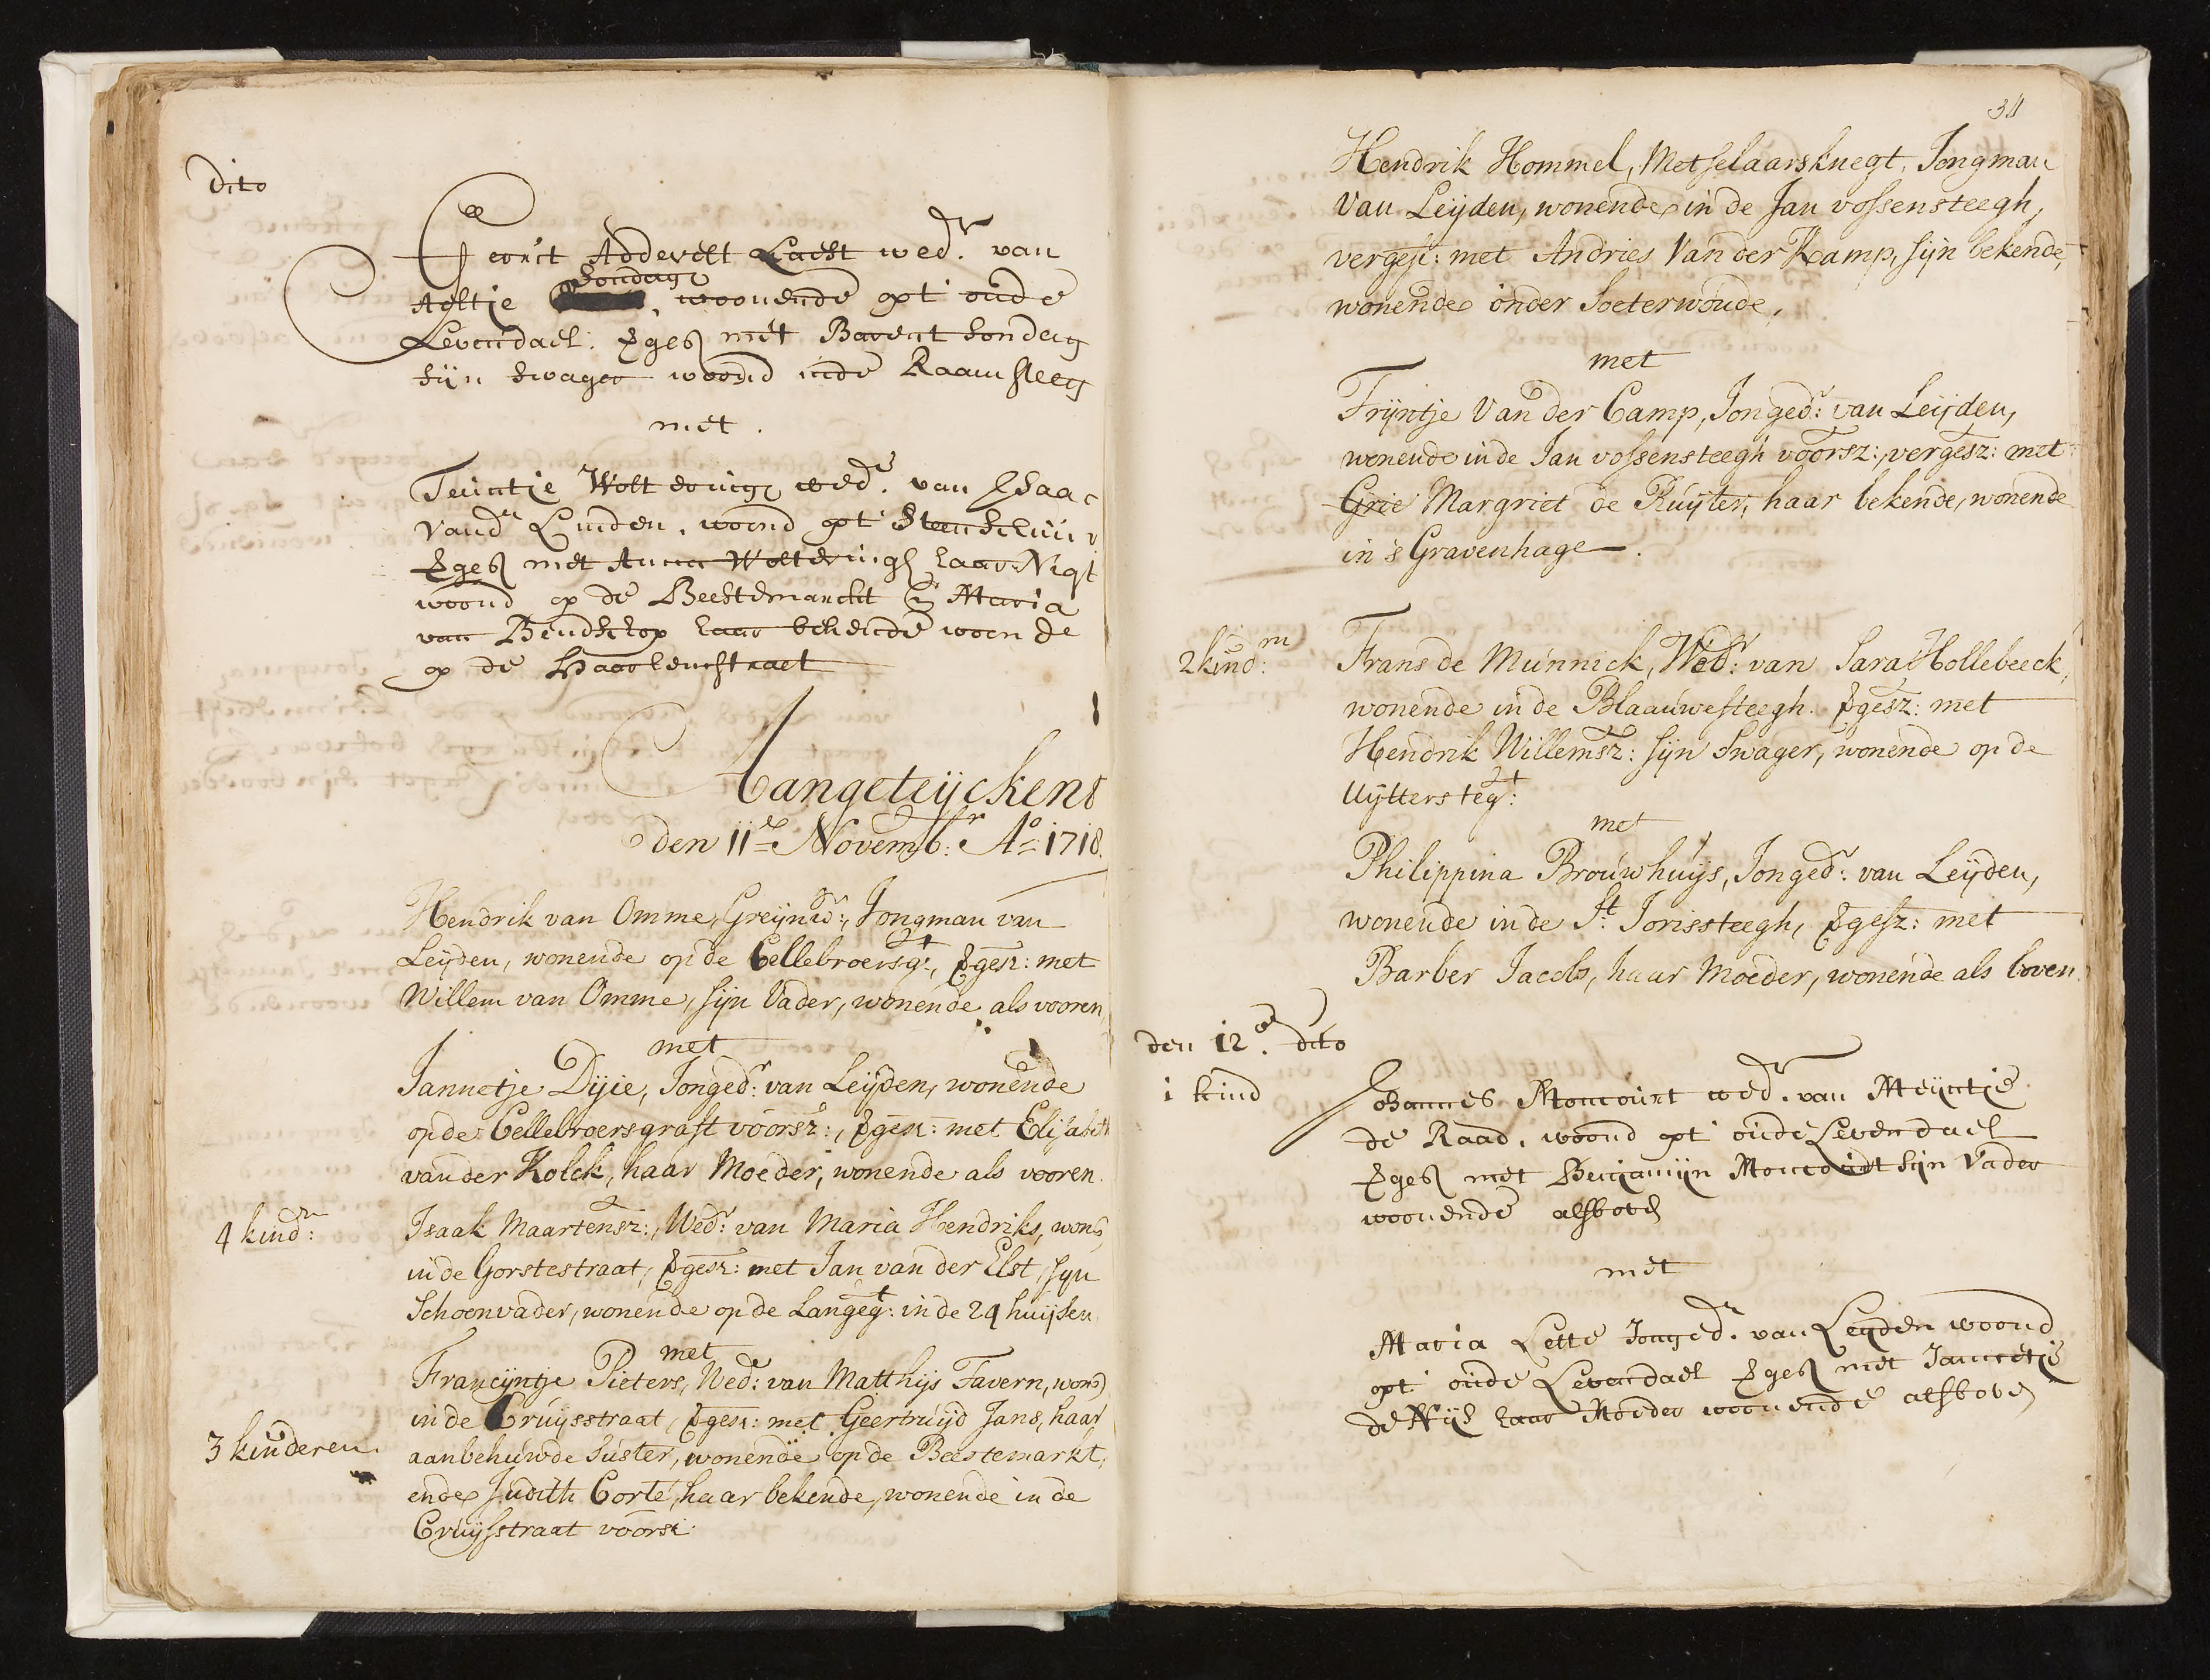 dito
Geerit Addevelt Laest wedr. van
Sondags
Aeltje , woonende opt oude
Levendael. verges met Barent Sondag
sijn swager woond inde Raamsteeg
met.
Teuntje Wolterings wed.e van Isaac
vandr Linden, woond opt Steenschuur
verges met Anna Wolterings haar Nigt
woond op de Beestemarckt en Maria
van Bendschop haar bekende woonde
op de Haarlemstraet
Aangeteijckent
den 11.e Novemb.r A.o 1718.
Hendrik van Omme, Greijnw.r, Jongman van
Leijden, wonende op de Cellebroersgt., vergesz: met
Willem van Omme, sijn Vader, wonende als vooren,
met
Jannetje Dijie, Jonged.r van Leijden, wonende
op de Cellebroersgraft voorsz:, vergesz: met Elisabeth
van der Kolck, haar Moeder, wonende als vooren.
4 kind.n:
Isaak Maartensz:, Wed.r van Maria Hendriks, wond
in de Gorstestraat, vergesz: met Jan van der Elst, sijn
Schoonvader, wonende op de Langegt: in de 24 huijsen
met
Francijntje Pieters, Wed.e van Matthijs Tavern, wond
in de Cruijsstraat, vergesz: met Geertruijd Jans, haar
3 kinderen.
aanbehuwde Suster, wonende op de Beestemarkt,
ende Judith Corte, haar bekende, wonende in de
Cruijsstraat voorsz:
34
Hendrik Hommel, Metselaarsknegt, Jongman
Van Leijden, wonende in de Jan vossensteegh,
vergesz: met Andries Van der Kamp, sijn bekende,
wonende onder Soeterwoude,
met
Trijntje Van der Camp, Jonged.r van Leijden,
wonende in de Jan vossensteegh voorsz:, vergesz: met
Grie Margriet de Ruijter, haar bekende, wonende
in 's Gravenhage.
2 kind.rn:
Frans de Munnick, Wed.r van Sara Hollebeeck,
wonende in de Blaauwesteegh. vergesz: met
Hendrik Willemsz: sijn Swager, wonende op de
Uijtterstegt:
met
Philippina Brouwhuijs, Jonged.r van Leijden,
wonende in de St. Jorissteegh, vergesz: met
Barber Jacobs, haar Moeder, wonende als boven.
den 12.e dito
1 kind
Johannes Moncourt wedr. van Meijntje
de Raad, woond opt oude Levendael
verges met Benjamijn Moncourt sijn Vader
woonende alsboven
met
Maria Lette Jongedr. van Leyden woond
opt oude Levendael verges met Jannetje
de Wijs haar Moeder woonende alsboven